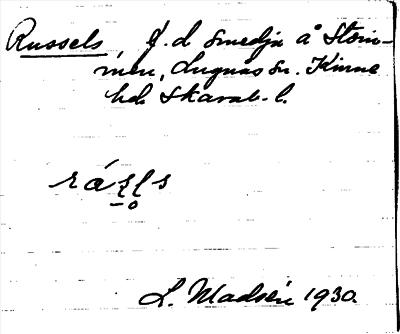 Russels, f. d. smedja å Sten-
men, Lugnås sn. Kinne
hd. Skarab. l.
rázls
L. Madsén 1930.